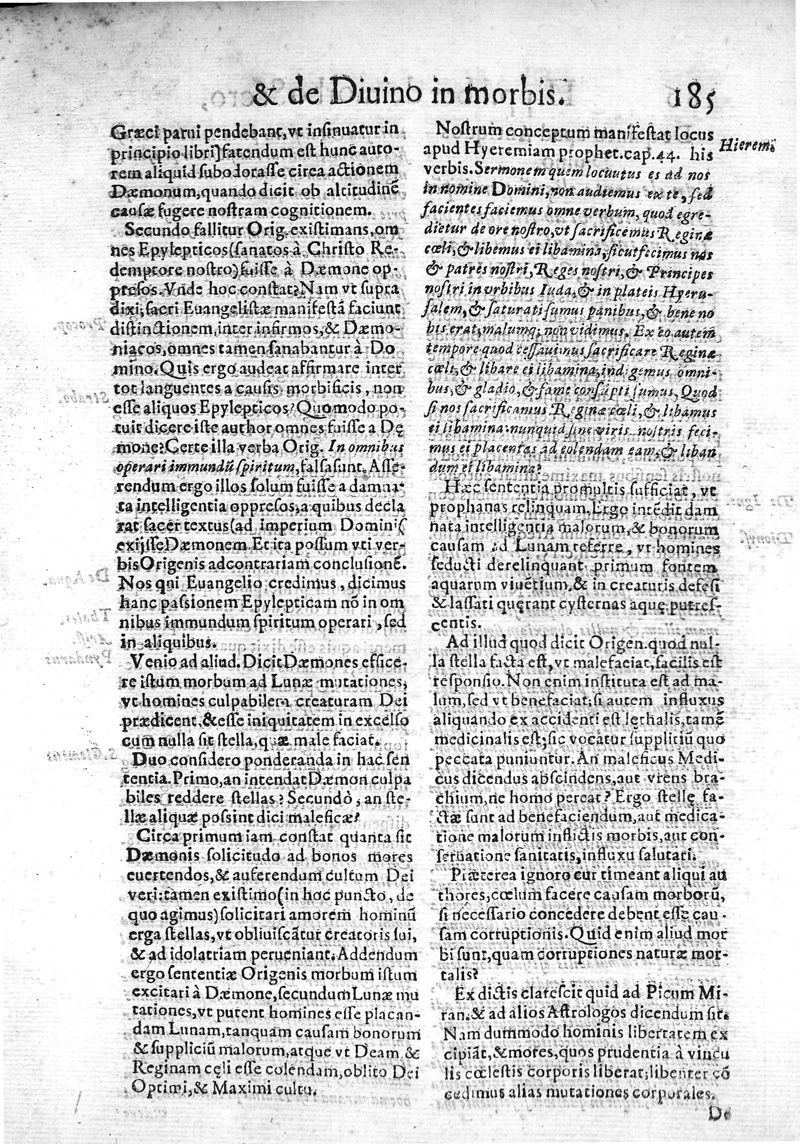 & de Diuino in morbis. 185
Græci parui pendebant, vt insinuatur in
principio libri] fatendum est hunc auto-
rem aliquid subodorasse circa actionem
Dæmonum, quando dicit ob altitudinē
causæ fugere nostram cognitionem.
Secundo fallitur Orig. existimans, om
nes Epylepticos (sanatos à Christo Re-
demptore nostro) fuisse à Dæmone op-
presos. Vnde hoc constat? Nam vt supra
dixi, sacri Euangelistæ manifestā faciunt
distinctionem, inter infirmos, & Dæmo-
niacos, omnes tamen sanabantur à Do
mino. Quis ergo audeat affirmare inter
tot languentes a causis morbificis, non
esse aliquos Epylepticos? Quomodo po-
tuit dicere iste author omnes fuisse a Dę
mone? Certe illa verba Orig. In omnibus
operari immundū spiritum, falsa sunt. Asse-
rendum ergo illos solum fuisse a damna-
ta intelligentia oppresos, a quibus decla
rat sacer textus (ad imperium Domini)
exijsse Dæmonem. Et ita possum vti ver-
bis Origenis ad contrariam conclusionē.
Nos qui Euangelio credimus, dicimus
hanc passionem Epylepticam nō in om
nibus immundum spiritum operari, sed
in aliquibus.
Venio ad aliud. Dicit Dæmones efficc-
re istum morbum ad Lunæ mutationes,
vt homines culpabilem creaturam Dei
prædicent, & esse iniquitatem in excelso
cum nulla sit stella, quæ male faciat.
Duo considero ponderanda in hac sen
tentia. Primo, an intendat Dæmon culpa
biles reddere stellas? Secundò, an ste-
llæ aliquæ possint dici maleficæ?
Circa primum iam constat quanta sit
Dæmonis solicitudo ad bonos mores
euertendos, & auferendum cultum Dei
veri: tamen existimo (in hoc puncto, de
quo agimus) solicitari amorem hominū
erga stellas, vt obliuiscātur creatoris sui,
& ad idolatriam perueniant. Addendum
ergo sententiæ Origenis morbum istum
excitari à Dæmone, secundum Lunæ mu
tationes, vt putent homines esse placan-
dam Lunam, tanquam causam bonorum
& suppliciū malorum, atque vt Deam &
Reginam cęli esse colendam, oblito Dei
Optimi, & Maximi cultu.
Nostrum conceptum manifestat locus
apud Hyeremiam prophet. cap. 44. his
Hieremi
verbis. Sermonem quem locutus es ad nos
in nomine Domini, non audiemus ex te, sed
facientes faciemus omne verbum, quod egre-
dietur de ore nostro, vt sacrificemus Reginæ
cœli, & libemus ei libamina, sicut fecimus nos
& patres nostri, Reges nostri, & Principes
nostri in vrbibus Iuda, & in plateis Hyeru-
salem, & saturati sumus panibus, & bene no
bis erat, malumq; non vidimus. Ex eo autem
tempore quod cessauimus sacrificare Reginæ
cœli, & libare ei libamina, indigemus omni-
bus, & gladio, & fame consūpti sumus. Quod
si nos sacrificamus Reginæ cœli, & libamus
ei libamina: nunquid sine viris nostris feci-
mus ei placentas ad colendam eam, & liban
dum ei libamina?
Hæc sententia pro multis sufficiat, vt
prophanas relinquam. Ergo intēdit dam
nata intelligentia malorum, & bonorum
causam ad Lunam referre, vt homines
seducti derelinquant primum fontem
aquarum viuētium, & in creaturis defesi
& lassati quęrant cysternas aquę putres-
centis.
Ad illud quod dicit Origen. quod nul-
la stella facta est, vt malefaciat, facilis est
responsio. Non enim instituta est ad ma-
lum, sed vt benefaciat; si autem influxus
aliquando ex accidenti est lęthalis, tamē
medicinalis est; sic vocatur suppliciū quo
peccata puniuntur. An maleficus Medi-
cus dicendus abscindens, aut vrens bra-
chium, ne homo pereat? Ergo stellę fa-
ctæ sunt ad benefaciendum, aut medica-
tione malorum inflictis morbis, aut con-
seruatione sanitatis, influxu salutari.
Præterea ignoro cur timeant aliqui au
thores, cœlum facere causam morborū,
si necessario concedere debent esse cau-
sam corruptionis. Quid enim aliud mor
bi sunt, quam corruptiones naturæ mor-
talis?
Ex dictis clarescit quid ad Picum Mi-
ran. & ad alios Astrologos dicendum sit.
Nam dummodo hominis libertatem ex
cipiāt, & mores, quos prudentia à vincu
lis cœlestis corporis liberat; libenter cō
cedimus alias mutationes corporales.
De